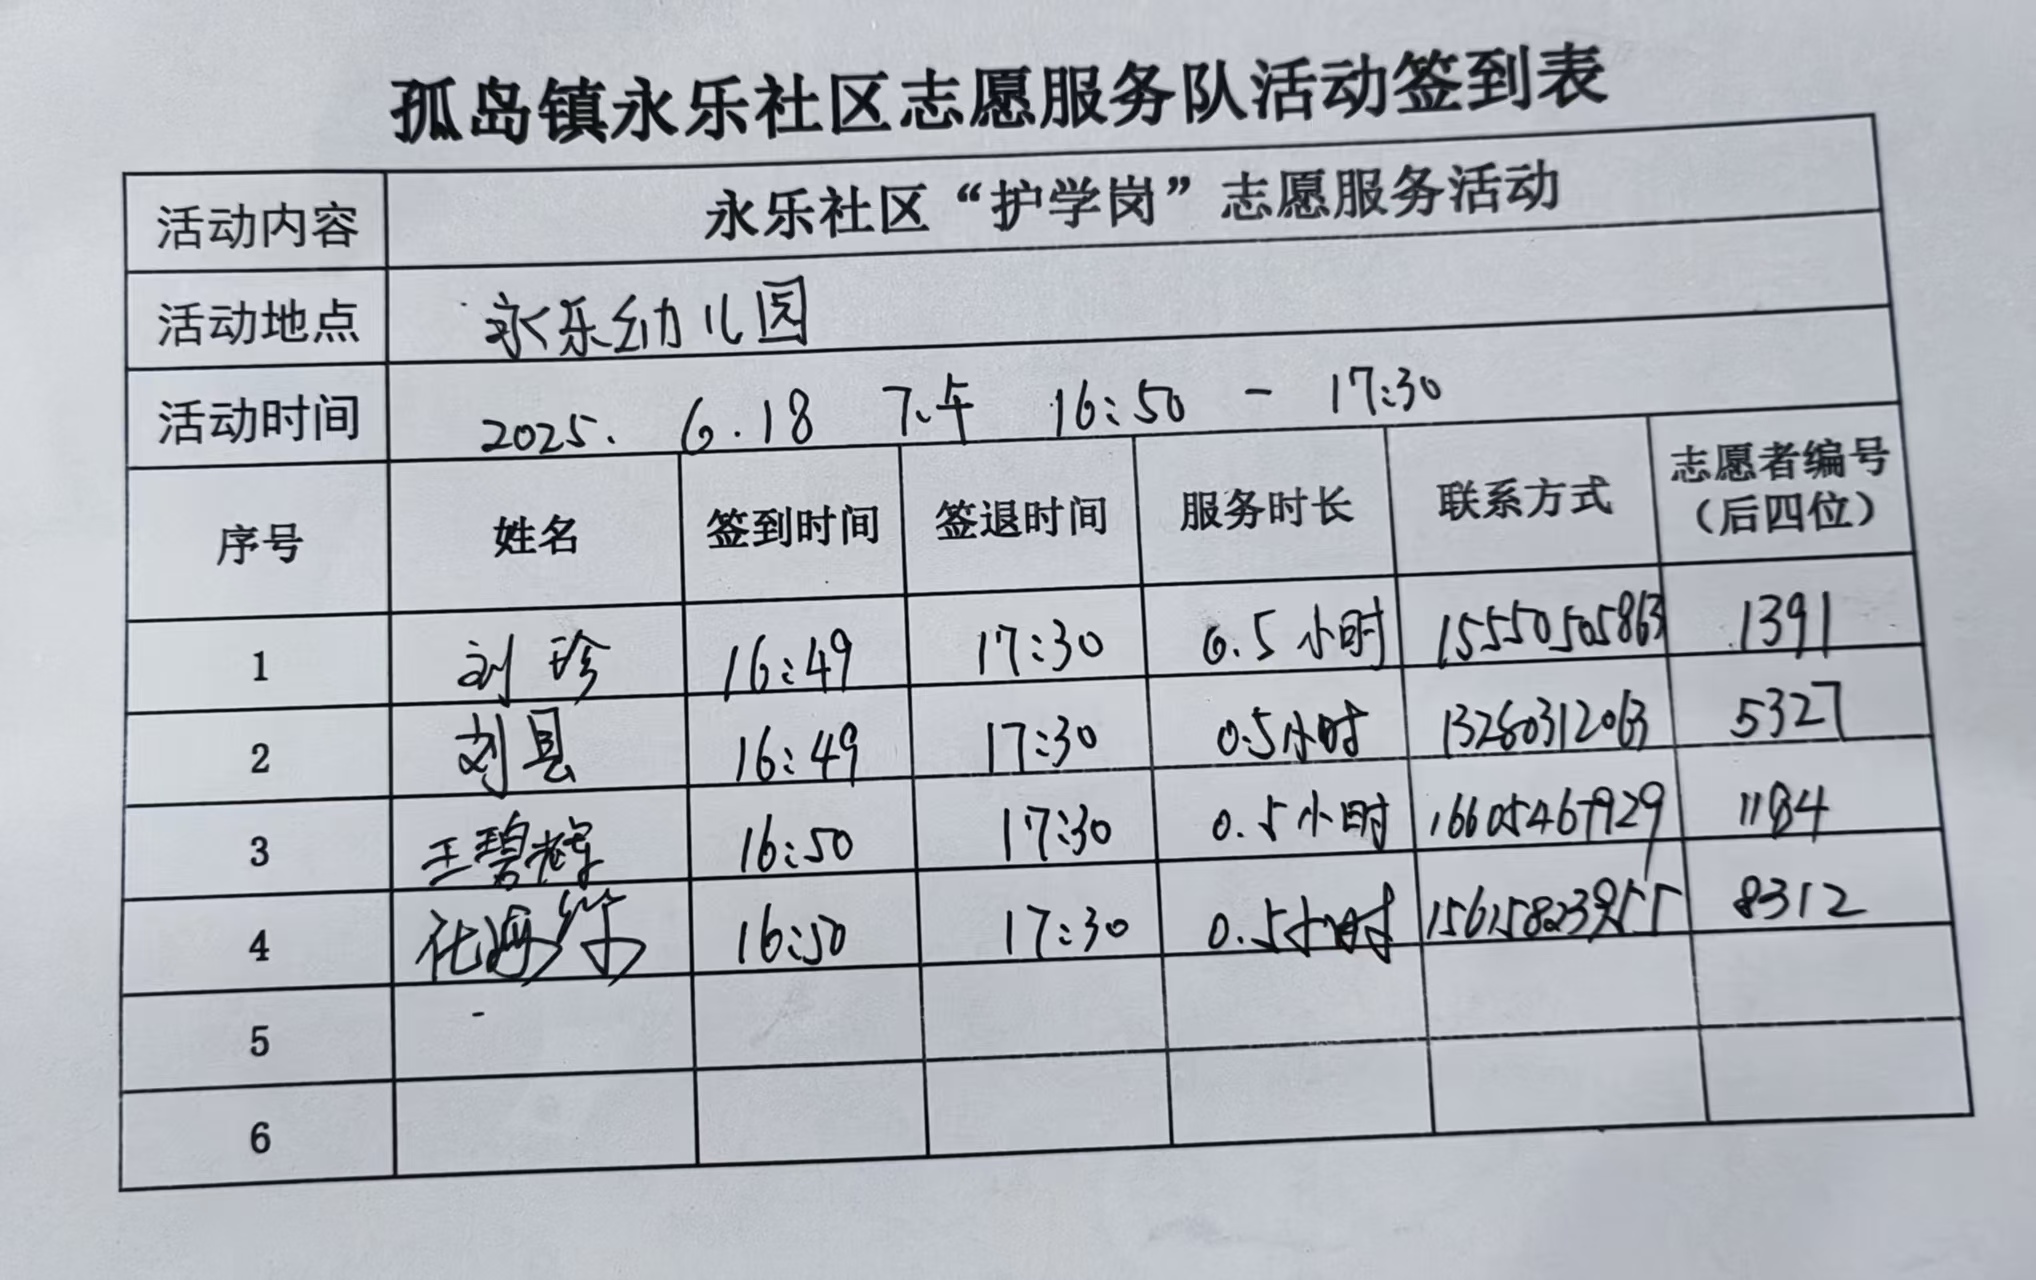 孤岛镇永乐社区志愿服务队活动签到表
活动内容 永乐社区“护学岗”志愿服务活动
活动地点 永乐幼儿园
活动时间 2025. 6.18 下午 16:50 - 17:30
序号 姓名 签到时间 签退时间 服务时长 联系方式 志愿者编号（后四位）
1 刘珍 16:49 17:30 0.5小时 15550505863 1391
2 刘县 16:49 17:30 0.5小时 13280312063 5327
3 王碧辉 16:50 17:30 0.5小时 16605467929 1184
4 16:50 17:30 0.5小时 8312
5
6